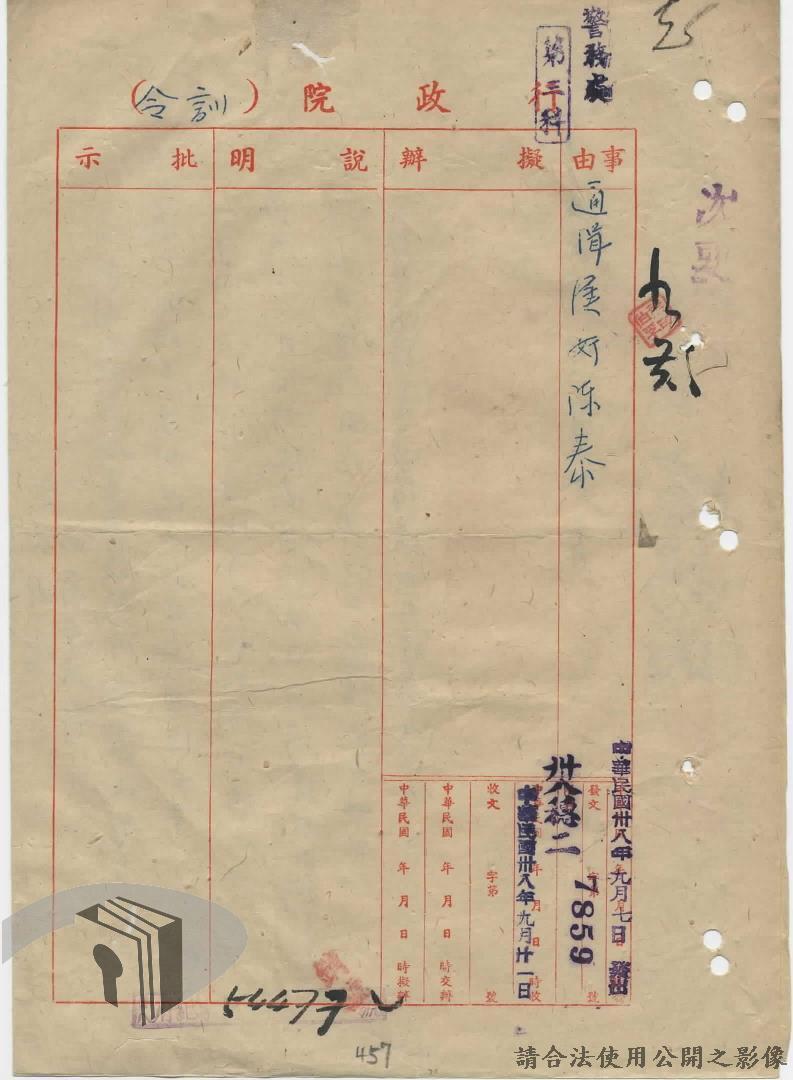 警務處
第三科
行政院（訓令）
事由
擬辦
說明
批示
通緝漢奸陳泰
中華民國卅八年九月七日發出
發文 字第 號
卅八穗二
7859
中華民國卅八年九月廿一日
收文 字第 號
中華民國 年 月 日 時交辦
中華民國 年 月 日 時擬辦
54477
457
請合法使用公開之影像